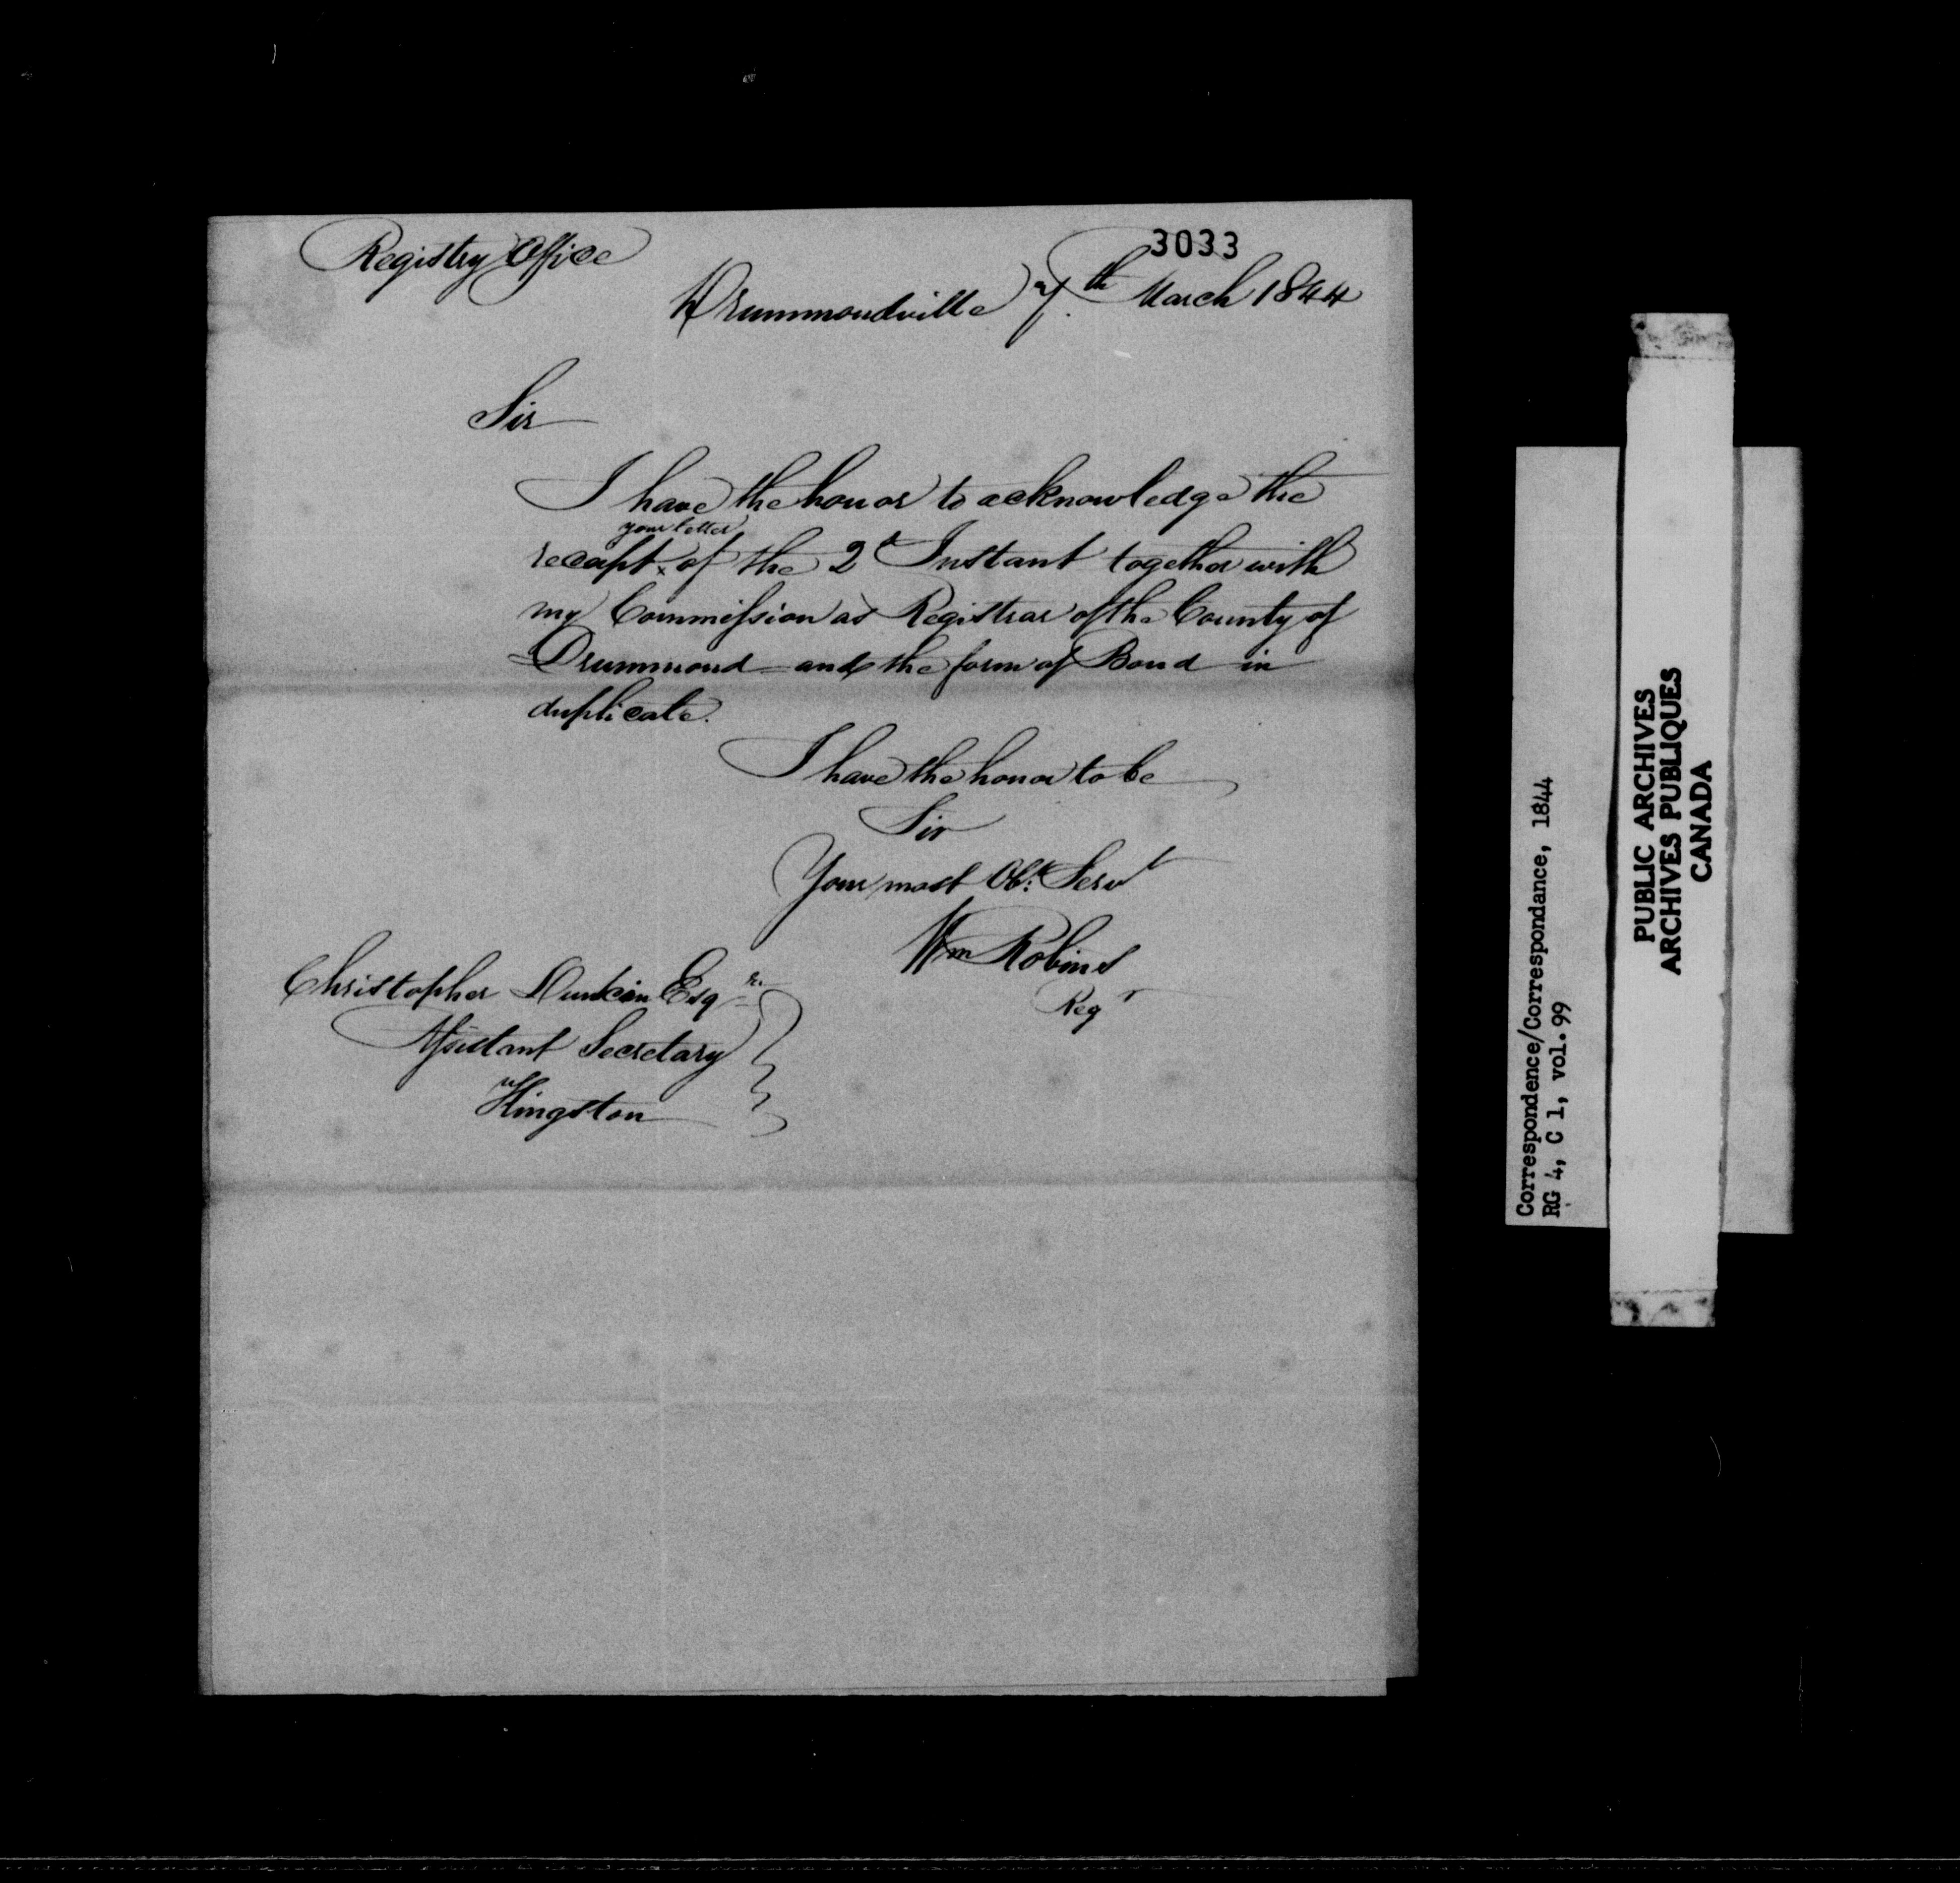 3033
Registry Office
Drummondville 7th March 1844
Sir
I have the honor to acknowledge the
your letter
receipt x of the 2d Instant together with
my Commission as Registrar of the County of
Drummond and the form of Bond in
duplicate.
I have the honor to be
Sir
Your most Obt. Servt
Wm Robins
Regr
Christopher Dunkin Esqr.
Assistant Secretary
Kingston
Correspondence/Correspondance, 1844
RG 4, C 1, vol. 99
PUBLIC ARCHIVES
ARCHIVES PUBLIQUES
CANADA